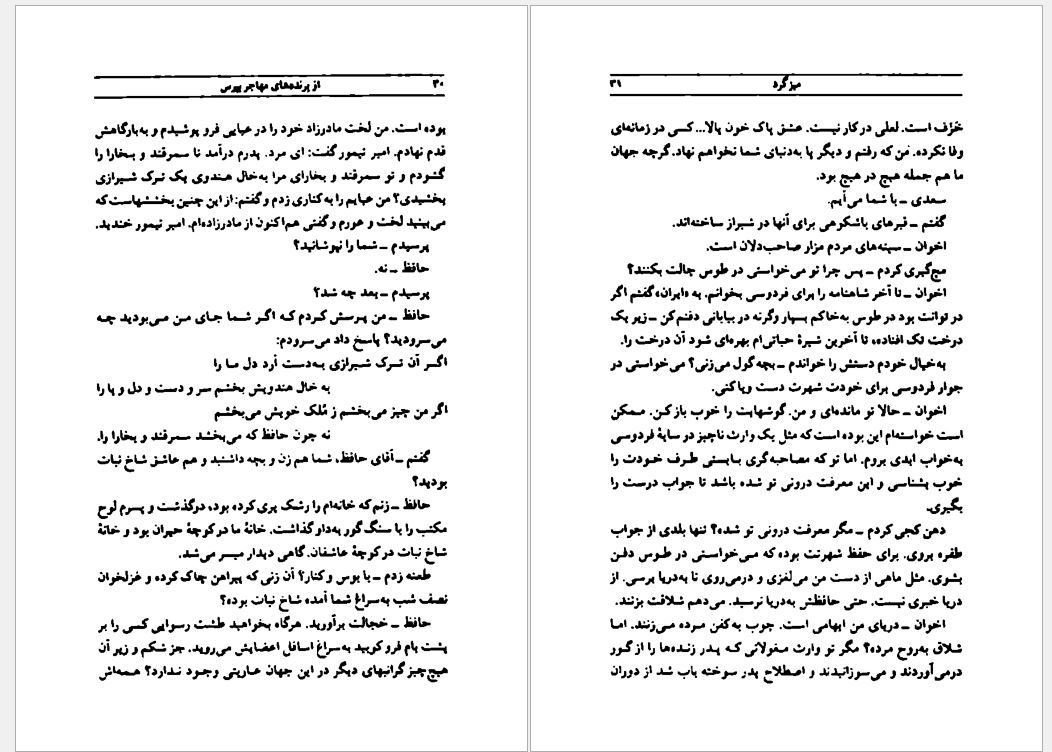 ۳۰ از پرنده‌های مهاجر بپرس
بوده است. من لخت مادرزاد خود را در عبایی فرو پوشیدم و به‌بارگاهش
قدم نهادم. امیر تیمور گفت: ای مرد. پدرم درآمد تا سمرقند و بخارا را
گشودم و تو سمرقند و بخارای مرا به‌خال هندوی یک ترک شیرازی
بخشیدی؟ من عبایم را به‌کناری زدم و گفتم: از این چنین بخششهاست که
می‌بینید لخت و عورم و گفتی هم‌اکنون از مادرزاده‌ام. امیر تیمور خندید.
پرسیدم ــ شما را نپوشانید؟
حافظ ــ نه.
پرسیدم ــ بعد چه شد؟
حافظ ــ من پرسش کردم که اگر شما جای من می‌بودید چه
می‌سرودید؟ پاسخ داد می‌سرودم:
اگر آن ترک شیرازی به‌دست آرد دل ما را
به خال هندویش بخشم سر و دست و دل و پا را
اگر من چیز می‌بخشم ز مُلک خویش می‌بخشم
نه چون حافظ که می‌بخشد سمرقند و بخارا را.
گفتم ــ آقای حافظ، شما هم زن و بچه داشتید و هم عاشق شاخ نبات
بودید؟
حافظ ــ زنم‌که خانه‌ام را رشک پری‌کرده بود، درگذشت و پسرم لوح
مکتب را با سنگ گور به‌داو گذاشت. خانهٔ ما در کوچهٔ حیران بود و خانهٔ
شاخ نبات در کوچهٔ عاشقان. گاهی دیدار میسر می‌شد.
طعنه زدم ــ با بوس و کنار؟ آن زنی‌که پیراهن چاک‌کرده و غزلخوان
نصف شب به‌سراغ شما آمده شاخ نبات بوده؟
حافظ ــ خجالت برآورید. هرگاه بخواهید طشت رسوایی کسی را بر
پشت بام فرو کوبید به‌سراغ اسافل اعضایش می‌روید. جز شکم و زیر آن
هیچ‌چیز گرانبهای دیگر در این جهان عاریتی وجود ندارد؟ همه‌اش
میزگرد ۳۱
خَزَف است. لعلی در کار نیست. عشق پاک خون پالا... کسی در زمانه‌ای
وفا نکرده. من که رفتم و دیگر پا به‌دنیای شما نخواهم نهاد. گرچه جهان
ما هم جمله هیچ در هیچ بود.
سعدی ــ با شما می‌آیم.
گفتم ــ قبرهای باشکوهی برای آنها در شیراز ساخته‌اند.
اخوان ــ سینه‌های مردم مزار صاحب‌دلان است.
مچ‌گیری کردم ــ پس چرا تو می‌خواستی در طوس چالت بکنند؟
اخوان ــ تا آخر شاهنامه را برای فردوسی بخوانم. به «ایران» گفتم اگر
در توانت بود در طوس به‌خاکم بسپار وگرنه در بیابانی دفنم‌کن ــ زیر یک
درخت تک افتاده، تا آخرین شیرهٔ حیاتی‌ام بهره‌ای شود آن درخت را.
به‌خیال خودم دستش را خواندم ــ بچه‌گول می‌زنی؟ می‌خواستی در
جوار فردوسی برای خودت شهرت دست وپاکنی.
اخوان ــ حالا تو مانده‌ای و من. گوشهایت را خوب بازکن. ممکن
است خواسته‌ام این بوده است‌که مثل یک وارث ناچیز در سایهٔ فردوسی
به‌خواب ابدی بروم. اما تو که مصاحبه‌گری بایستی طرف خودت را
خوب بشناسی و این معرفت درونی تو شده باشد تا جواب درست را
بگیری.
دهن کجی کردم ــ مگر معرفت درونی تو شده؟ تنها بلدی از جواب
طفره بروی. برای حفظ شهرتت بوده که می‌خواستی در طوس دفن
بشوی. مثل ماهی از دست من می‌لغزی و درمی‌روی تا به‌دریا برسی. از
دریا خبری نیست. حتی حافظش به‌دریا نرسید. می‌دهم شلاقت بزنند.
اخوان ــ دریای من ابهامی است. چوب به‌کفن مرده می‌زنند. اما
شلاق به‌روح مرده؟ مگر تو وارث مغولانی که پدر زنده‌ها را از گور
درمی‌آوردند و می‌سوزانیدند و اصطلاح پدر سوخته باب شد از دوران